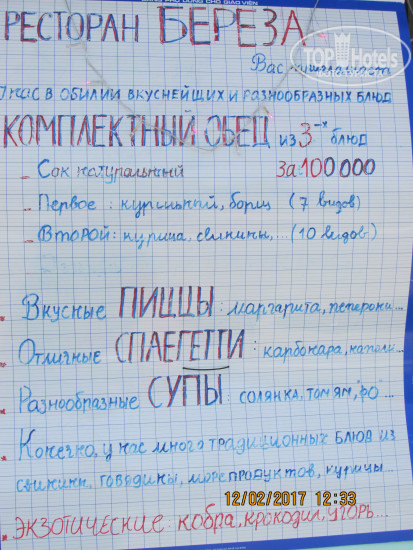 DÙNG CHO GIÁO VIÊN
РЕСТОРАН БЕРЕЗА
Вас приглашает
TOP Hotels
У НАС В ОБИЛИИ ВКУСНЕЙШИХ И РАЗНООБРАЗНЫХ БЛЮД
КОМПЛЕКТНЫЙ ОБЕД ИЗ 3-х БЛЮД
- Сок натуральный За 100 000
- Первое: куриный, борщ (7 видов)
- ВТОРОЙ: курица, свинины,... (10 видов)
• Вкусные ПИЦЦЫ: маргарита, пеперони...
• Отличные СПАЕГЕТТИ: карбонара, наполи...
• Разнообразные СУПЫ: СОЛЯНКА, ТОМ ЯМ, "ФО"...
• Конечно, у нас много традиционных блюд из
свинины, говядины, морепродуктов, курицы...
12/02/2017 12:33
• ЭКЗОТИЧЕСКИЕ: кобра, крокодил, угорь...